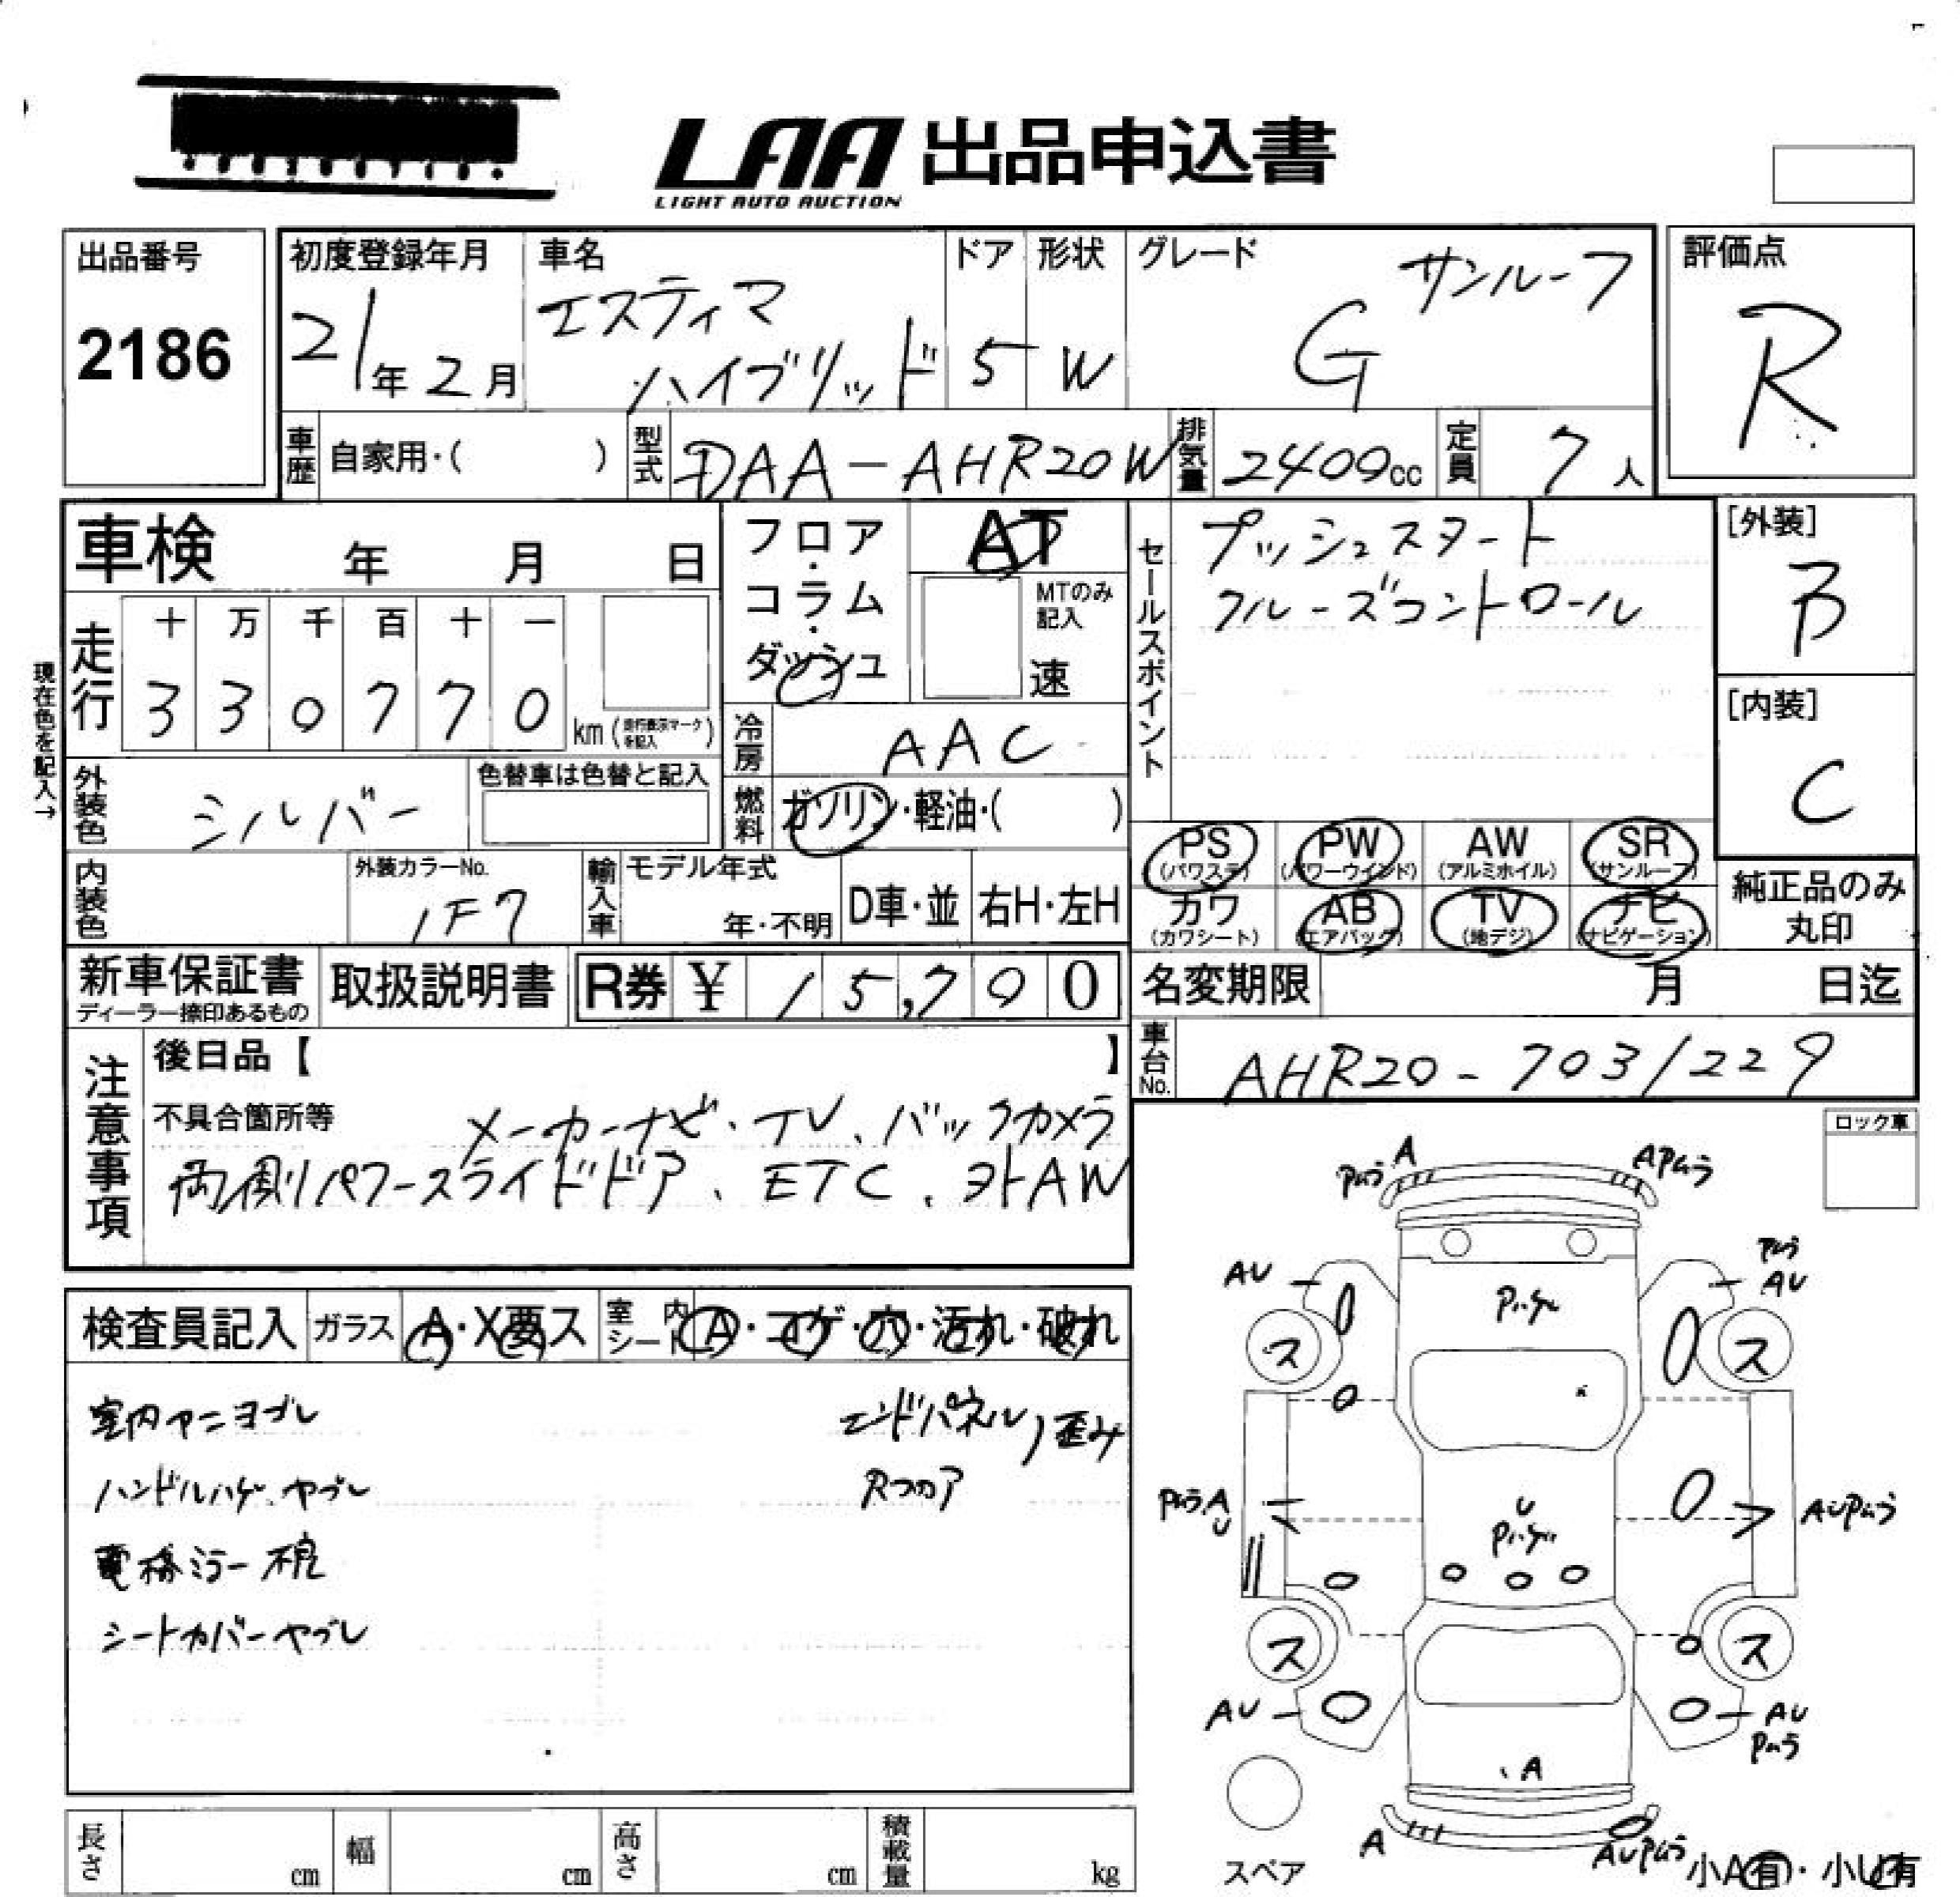 LAA 出品申込書
LIGHT AUTO AUCTION
出品番号
2186
初度登録年月
21年 2月
車名
エスティマ
ハイブリッド
ドア
5
形状
W
グレード
サンルーフ
G
評価点
R
車歴 自家用・( )
型式 DAA-AHR20W
排気量 2400cc
定員 7人
車検 年 月 日
現在色を記入→
走行 十 万 千 百 十 一
3 3 0 7 7 0 km(走行表示マークを記入)
フロア・コラム・ダッシュ
AT
MTのみ記入
速
冷房 AAC
燃料 ガソリン・軽油・( )
セールスポイント
プッシュスタート
クルーズコントロール
[外装]
B
[内装]
C
外装色 シルバー
色替車は色替と記入
内装色
外装カラーNo.
1F7
輸入車
モデル年式
年・不明
D車・並
右H・左H
PS (パワステ)
PW (パワーウインド)
AW (アルミホイル)
SR (サンルーフ)
カワ (カワシート)
AB (エアバッグ)
TV (地デジ)
ナビ (ナビゲーション)
純正品のみ
丸印
新車保証書
ディーラー捺印あるもの
取扱説明書
R券 ¥ 15,700
名変期限 月 日迄
車台No. AHR20-7031229
注意事項
後日品【 】
不具合箇所等
メーカーナビ・TV、バックカメラ
両側パワースライドドア、ETC、ヨトAW
ロック車
検査員記入
ガラス A・X要ス
室内シート A・コゲ・穴・汚れ・破れ
室内ヤニヨゴレ
ハンドルハゲ、ヤブレ
電格ミラー不良
シートカバーヤブレ
エンドパネル
Rフロア
歪み
Pムラ A
APムラ
AU
Pムラ
AU
ス
ス
Pハゲ
PムラA
U
U
Pハゲ
AUPムラ
ス
ス
AU
AU
Pムラ
A
A
AUPムラ
スペア
小A有・小U有
長さ cm
幅 cm
高さ cm
積載量 kg